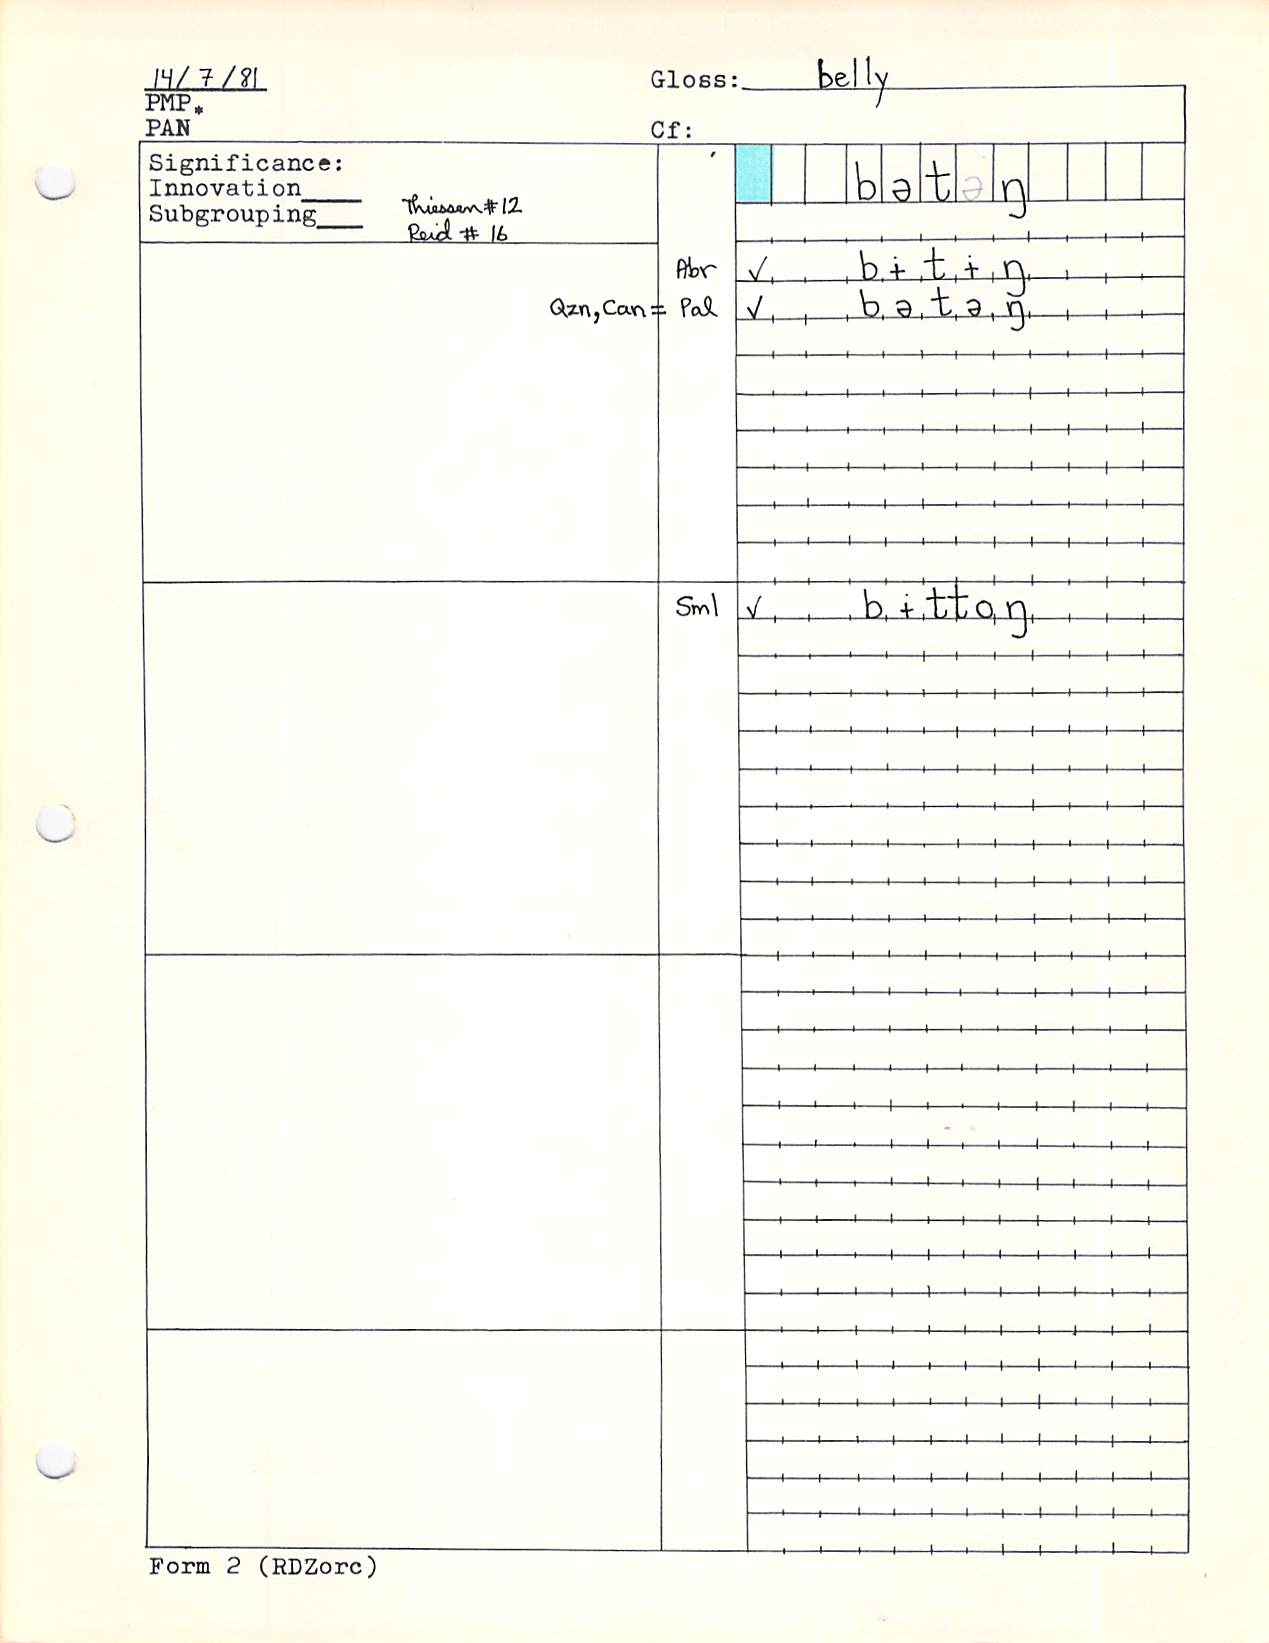 14/7/81 Gloss: belly
PMP*
PAN Cf:
Significance:
Innovation____
Subgrouping___ bətəŋ
Thiessen #12
Reid # 16
Abr ✓ bɨtɨŋ
Qzn, Can = Pal ✓ bətəŋ
Sml ✓ bɨttoŋ
Form 2 (RDZorc)